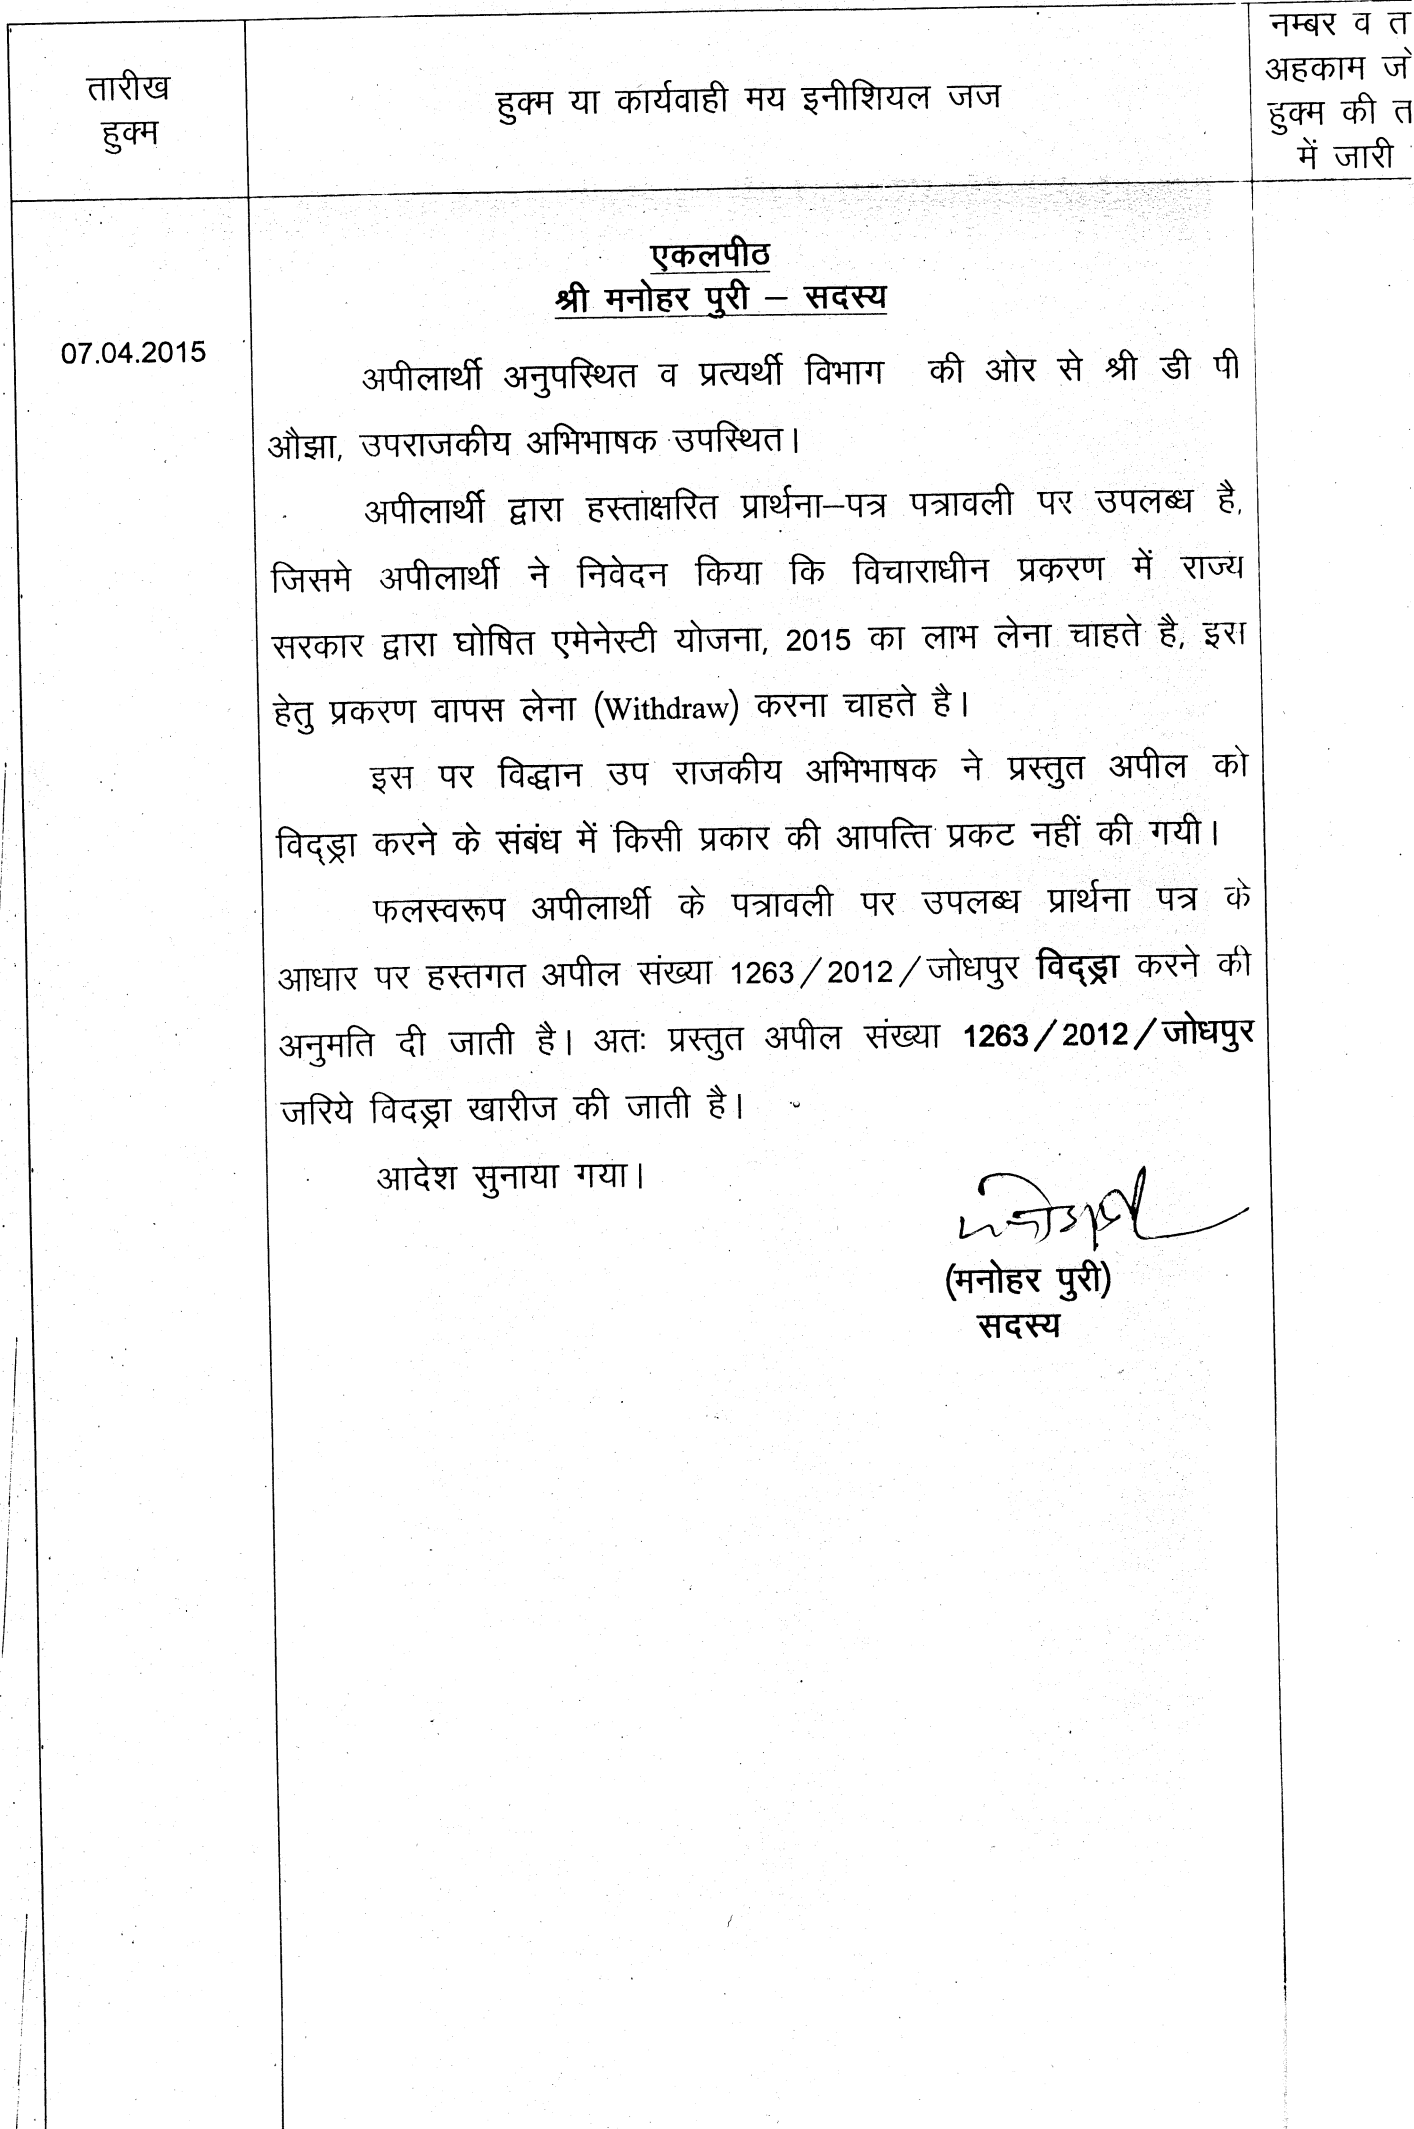 तारीख
हुक्म
हुक्म या कार्यवाही मय इनीशियल जज
नम्बर व
अहकाम
हुक्म की
में जारी
एकलपीठ
श्री मनोहर पुरी – सदस्य
07.04.2015
अपीलार्थी अनुपस्थित व प्रत्यर्थी विभाग की ओर से श्री डी पी
औझा, उपराजकीय अभिभाषक उपस्थित।
अपीलार्थी द्वारा हस्ताक्षरित प्रार्थना–पत्र पत्रावली पर उपलब्ध है,
जिसमे अपीलार्थी ने निवेदन किया कि विचाराधीन प्रकरण में राज्य
सरकार द्वारा घोषित एमेनेस्टी योजना, 2015 का लाभ लेना चाहते है, इस
हेतु प्रकरण वापस लेना (Withdraw) करना चाहते है।
इस पर विद्धान उप राजकीय अभिभाषक ने प्रस्तुत अपील को
विद्ड्रा करने के संबंध में किसी प्रकार की आपत्ति प्रकट नहीं की गयी।
फलस्वरूप अपीलार्थी के पत्रावली पर उपलब्ध प्रार्थना पत्र के
आधार पर हस्तगत अपील संख्या 1263/2012/जोधपुर विद्ड्रा करने की
अनुमति दी जाती है। अतः प्रस्तुत अपील संख्या 1263/2012/जोधपुर
जरिये विदड्रा खारीज की जाती है।
आदेश सुनाया गया।
(मनोहर पुरी)
सदस्य